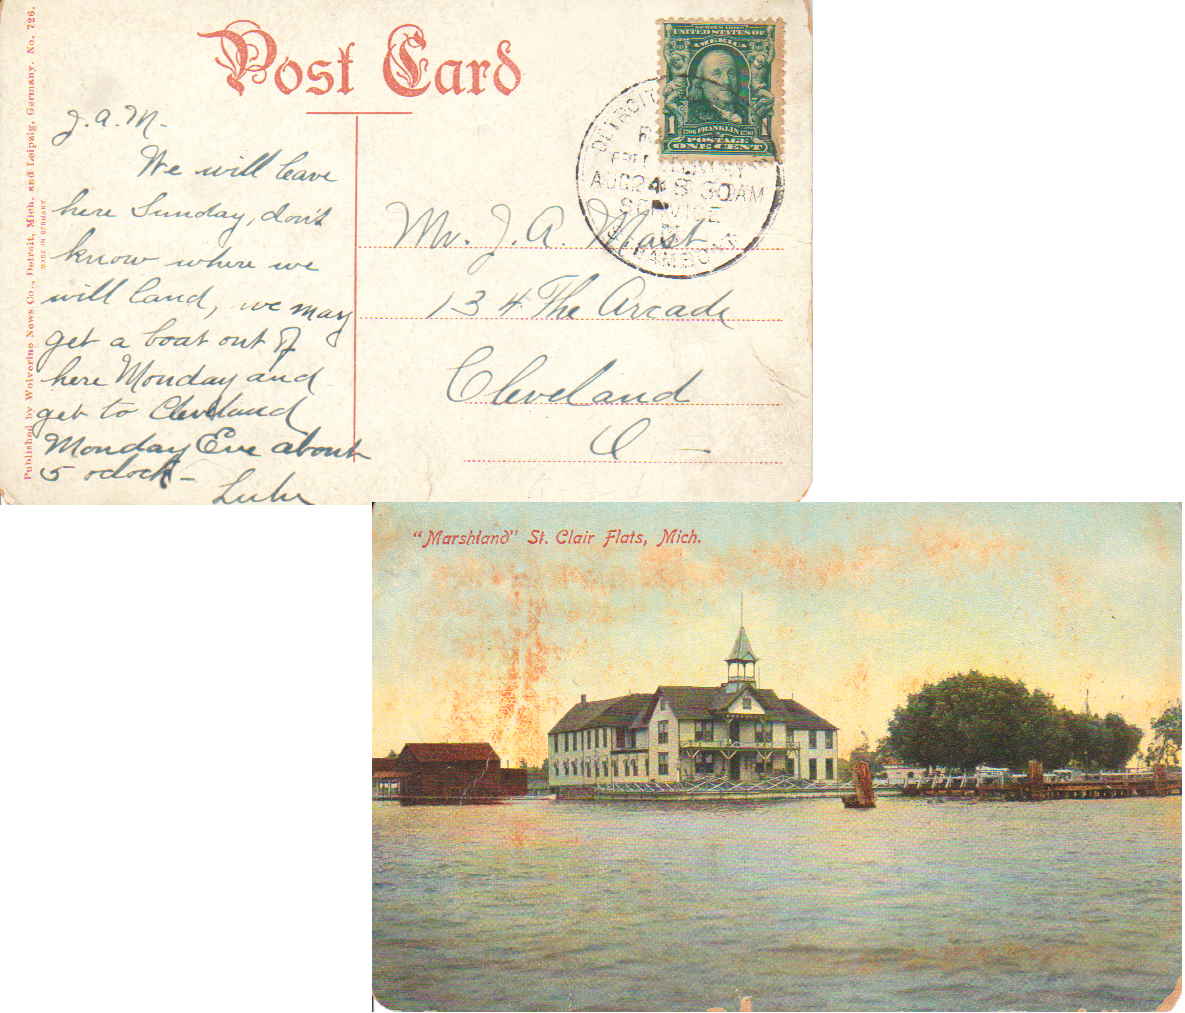 Post Card
UNITED STATES OF
AMERICA
1 1
FRANKLIN
POSTAGE
ONE CENT
DETROIT
AUG 24 8 30 AM
SERVICE
STEAMBOAT
Published by Wolverine News Co., Detroit, Mich. and Leipzig, Germany. No. 726.
MADE IN GERMANY.
J. A. M.
We will leave
here Sunday, don't
know where we
will land, we may
get a boat out of
here Monday and
get to Cleveland
Monday Eve about
5 oclock -
Lulu
Mr. J. A. Mast
134 The Arcade
Cleveland
O -
"Marshland" St. Clair Flats, Mich.